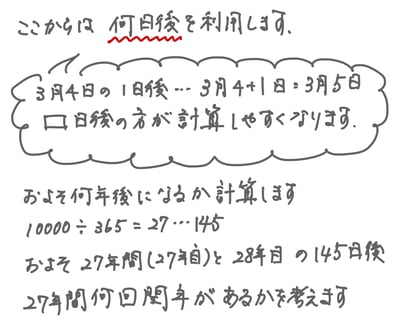 ここからは 何日後を利用します.
3月4日の1日後… 3月4+1日=3月5日
□日後の方が計算しやすくなります.
およそ何年後になるか計算します
10000÷365=27…145
およそ27年間(27年目)と28年目の145日後
27年間何回閏年があるかを考えます